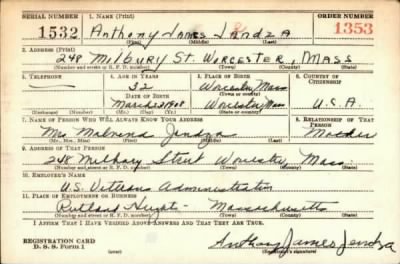 SERIAL NUMBER 1. NAME (Print) ORDER NUMBER
1532 Anthony James Jendza 1353
(First) (Middle) (Last)
2. ADDRESS (Print)
248 Milbury St. Worcester, Mass
(Number and street or R. F. D. number) (Town) (County) (State)
3. TELEPHONE 4. AGE IN YEARS 5. PLACE OF BIRTH 6. COUNTRY OF CITIZENSHIP
32 Worcester, Mass
DATE OF BIRTH (Town or county)
March 1908 Worcester Mass U.S.A.
(Exchange) (No.) (Mo.) (Day) (Yr.) (State or country)
7. NAME OF PERSON WHO WILL ALWAYS KNOW YOUR ADDRESS 8. RELATIONSHIP OF THAT PERSON
Mrs Jendza Mother
(Mr., Mrs., Miss) (First) (Middle) (Last)
9. ADDRESS OF THAT PERSON
248 Milbury Street Worcester, Mass.
(Number and street or R. F. D. number) (Town) (County) (State)
10. EMPLOYER'S NAME
U.S. Veterans Administration
11. PLACE OF EMPLOYMENT OR BUSINESS
Rutland Heights - Massachusetts
(Number and street or R. F. D. number) (Town) (County) (State)
I AFFIRM THAT I HAVE VERIFIED ABOVE ANSWERS AND THAT THEY ARE TRUE.
REGISTRATION CARD
D. S. S. Form 1 Anthony James Jendza
(Registrant's signature)